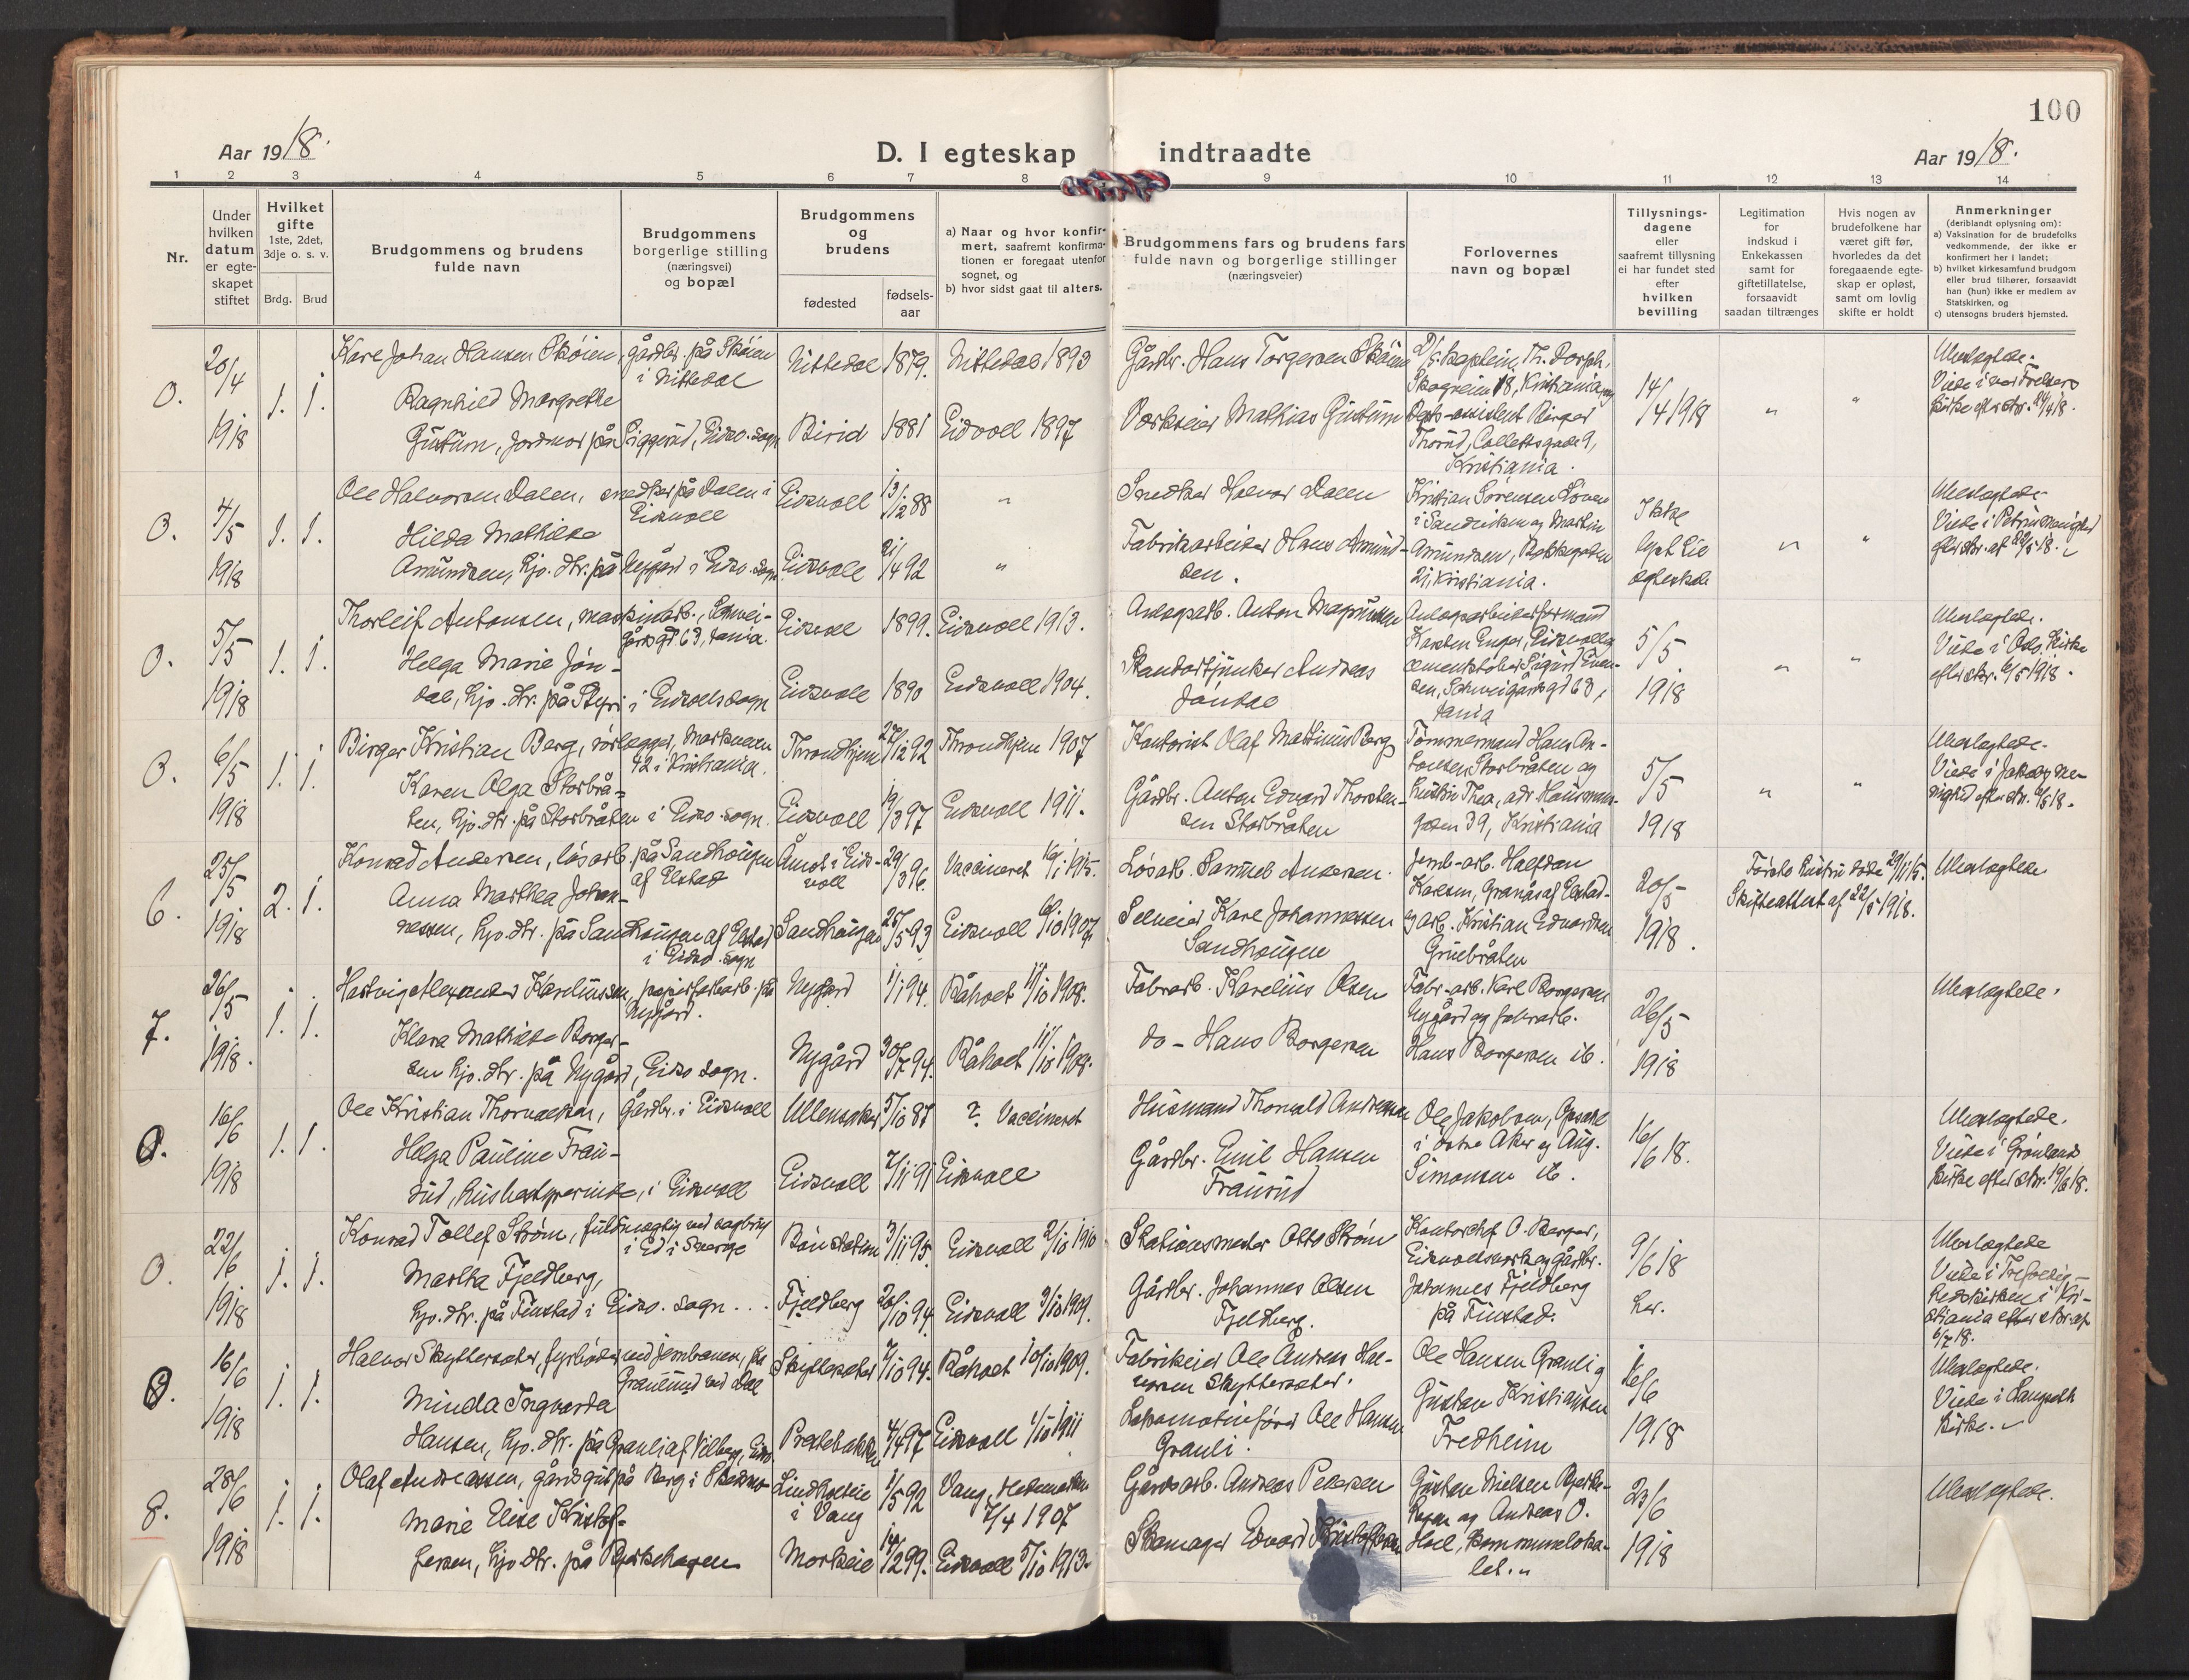 100
Aar 1918.
D. I egteskap indtraadte
Aar 1918.
1 2 3 4 5 6 7 8 9 10 11 12 13 14
Nr.
Under hvilken datum er egteskapet stiftet
Hvilket gifte
1ste, 2det, 3dje o. s. v.
Brdg. Brud
Brudgommens og brudens fulde navn
Brudgommens borgerlige stilling (næringsvei) og bopæl
Brudgommens og brudens
fødested
fødselsaar
a) Naar og hvor konfirmert, saafremt konfirmationen er foregaat utenfor sognet, og
b) hvor sidst gaat til alters.
Brudgommens fars og brudens fars fulde navn og borgerlige stillinger (næringsveier)
Forlovernes navn og bopæl
Tillysningsdagene eller saafremt tillysning ei har fundet sted efter hvilken bevilling
Legitimation for indskud i Enkekassen samt for giftetillatelse, forsaavidt saadan tiltrænges
Hvis nogen av brudefolkene har været gift før, hvorledes da det foregaaende egteskap er opløst, samt om lovlig skifte er holdt
Anmerkninger (deriblandt oplysning om):
a) Vaksination for de brudefolks vedkommende, der ikke er konfirmert her i landet;
b) hvilket kirkesamfund brudgom eller brud tilhører, forsaavidt han (hun) ikke er medlem av Statskirken, og
c) utensogns bruders hjemsted.
0. 20/4 1918 1. 1.
Karl Johan Hansen Skøien, gårdbr. på Skøien i Nittedal
Nittedal 1879. Nittedal 1893
Gårdbr. Hans Torgersen Skøien
Ragnhild Margrethe Gustum, jordmor på Liggerud, Eidsv. sogn
Birid 1881 Eidsvoll 1897
Værkseier Mathias Gustum
kaptein Th. Dorph, Skogveien 18, Kristiania og assistent Birger Thorud, Collettsgade 9, Kristiania.
14/4 1918 " "
Uberlægtede. Viede i vor Frelsers kirke efter
0. 4/5 1918 1. 1.
Ole Halvorsen Dalen, snedker på Dalen i Eidsvoll
Eidsvoll 13/12 88 "
Snedker Halvor Dalen
Hilda Mathilde Amundsen, hjv. dtr. på Nygård i Eidsv. sogn
Eidsvoll 21/4 92 "
Fabrikarbeider Hans Amundsen.
Kristian Sørensen i Sandviken og Martin Amundsen, 21, Kristiania.
Ikke lyst " "
Viede i Petrus menighed
0. 5/5 1918 1. 1.
Thorleif Antonsen, maskinarb., Schweigårdsgt 63, Kania.
Eidsvoll 1899. Eidsvoll 1913.
Anlægsarb. Anton Magnussen
Helga Marie Jøndal, hjv. dtr. på Styri i Eidsvolls sogn
Eidsvoll 1890 Eidsvoll 1904.
Standartjunker Andreas Jøndal
Anlægsarbeiderformand Karsten Enger, Eidsvoll og Sigurd Evensen, Schweigårdsgt 63, Kania
5/5 1918 " "
Viede i Oslo Kirke efter 6/5 1918.
0. 6/5 1918 1. 1.
Birger Kristian Berg, rørlegger, Markveien 42 i Kristiania.
Throndhjem 27/12 92 Throndhjem 1907
Kontorist Olaf Mathinius Berg
Karen Olga Storbråten, hjv. dtr. på Storbråten i Eidsv. sogn.
Eidsvoll 19/3 97 Eidsvoll 1911.
Gårdbr. Anton Edvard Thorstensen Storbråten
Tømmermand Hans Antonsen Storbråten og hustru Thea, adr. Hausmannsgaden 39, Kristiania
5/5 1918 " "
Viede i Jakobs menighed
6. 25/5 1918 2. 1.
Konrad Andersen, løsarb. på Sandhougen af Elstad
Åmot i Eidsvoll 29/3 96. Vaccineret
Løsarb. Samuel Andersen.
Anna Marthea Johannessen, hjv. dtr. på Sandhougen af Elstad i Eidsv. sogn
Sandhougen 25/5 93 Eidsvoll 6/10 1907.
Selveier Karl Johannessen Sandhougen
Jernb.-arb. Halfdan Karlsen, Granås af Elstad og arb. Kristian Edvardsen Gruebråten
20/5 1918.
Første hustru døde 29/11 15. Skifteattest af 22/5 1918.
7. 26/5 1918. 1. 1.
Hartvig Alexander Kareliussen, papirfabarb. på Nygård.
Nygård 1/1 94. Råholt 11/10 1908.
Fabrarb. Karelius Olsen
Klara Mathilde Borgersen hjv. dtr. på Nygård, Eidsv sogn.
Nygård 30/7 94. Råholt 11/10 1908.
do - Hans Borgersen
Fabr-arb. Karl Borgersen Nygård og fabrarb. Hans Borgersen ib.
26/5 1918
0. 16/6 1918 1. 1.
Ole Kristian Thorvaldsen, Gårdbr. i Eidsvoll
Ullensaker 5/10 87 ? Vaccineret
Husmand Thorvald Andersen
Helga Pauline Fraurud, husbestyrerinde, i Eidsvoll
Eidsvoll 7/11 91 Eidsvoll
Gårdbr. Emil Hansen Fraurud
Ole Jakobsen, Opsal i Østre Aker og Aug. Simonsen ib.
16/6 18.
Viede i Grønland Kirke efter 19/6 18.
0. 22/6 1918 1. 1.
Konrad Tollef Strøm, fuldmægtig ved sagbruk i Ed i Sverge
Bøn station 3/11 95. Eidsvoll 2/10 1910
Stationsmester Otto Strøm
Martha Fjeldberg, hjv. dtr. på Finstad i Eidsv. sogn...
Fjeldberg 20/10 94 Eidsvoll 3/10 1909.
Gårdbr. Johannes Olsen Fjeldberg.
Kontorchef O. Berger, Eidsvoldsverk og gårdbr. Johannes Fjeldberg på Finstad.
9/6 18 her.
Viede i Trefoldighedskirken i Kristiania efter 6/7 18.
0. 16/6 1918 1. 1.
Halvor Skyttersæter, fyrbøder ved jernbanen, fra Graulund ved Dal
Skyttersæter 7/10 94. Råholt 10/10 1909.
Fabrikeier Ole Andreas Halvorsen Skyttersæter.
Minda Ingvarda Hansen, hjv. dtr. på Grauli af Vilberg, Eidsv.
Prestebakken 4/4 97 Eidsvoll 1/10 1911
Lokomotivfører Ole Hansen Grauli.
Ole Hansen Grauli og Gustav Kristiansen Fredheim
16/6 1918
Viede i Langseth Kirke.
8. 28/6 1918 1. 1.
Olaf Andreassen, gårdsgut på Berg i Skedsmo
i Vang 1/5 92 Vang, Hedemarken 7/4 1907
Gårdsarb. Andreas Pedersen
Marie Elise Kristoffersen, hjv. dtr. på Bjerkehagen
Morkeie 14/12 99. Eidsvoll 5/10 1913.
Skomager Edvard Kristoffersen
Gustav Nielsen Bjerkehagen og Andreas O. Hoel, kommunelokalet.
23/6 1918